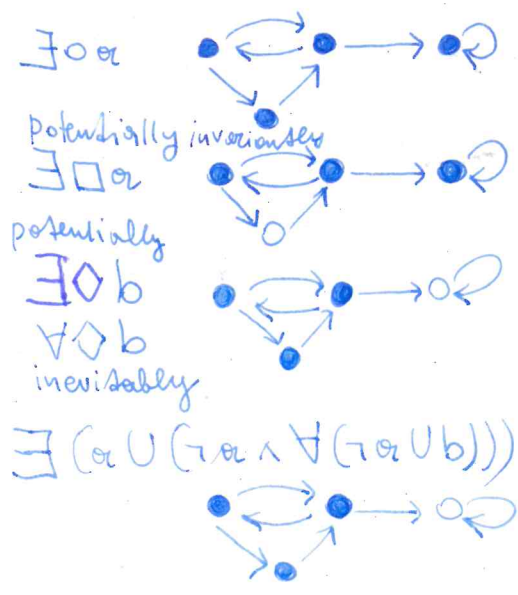 ∃○a
potentially invariantly
∃□a
potentially
∃◇b
∀◇b
inevitably
∃(a∪(¬a∧∀(¬a∪b)))